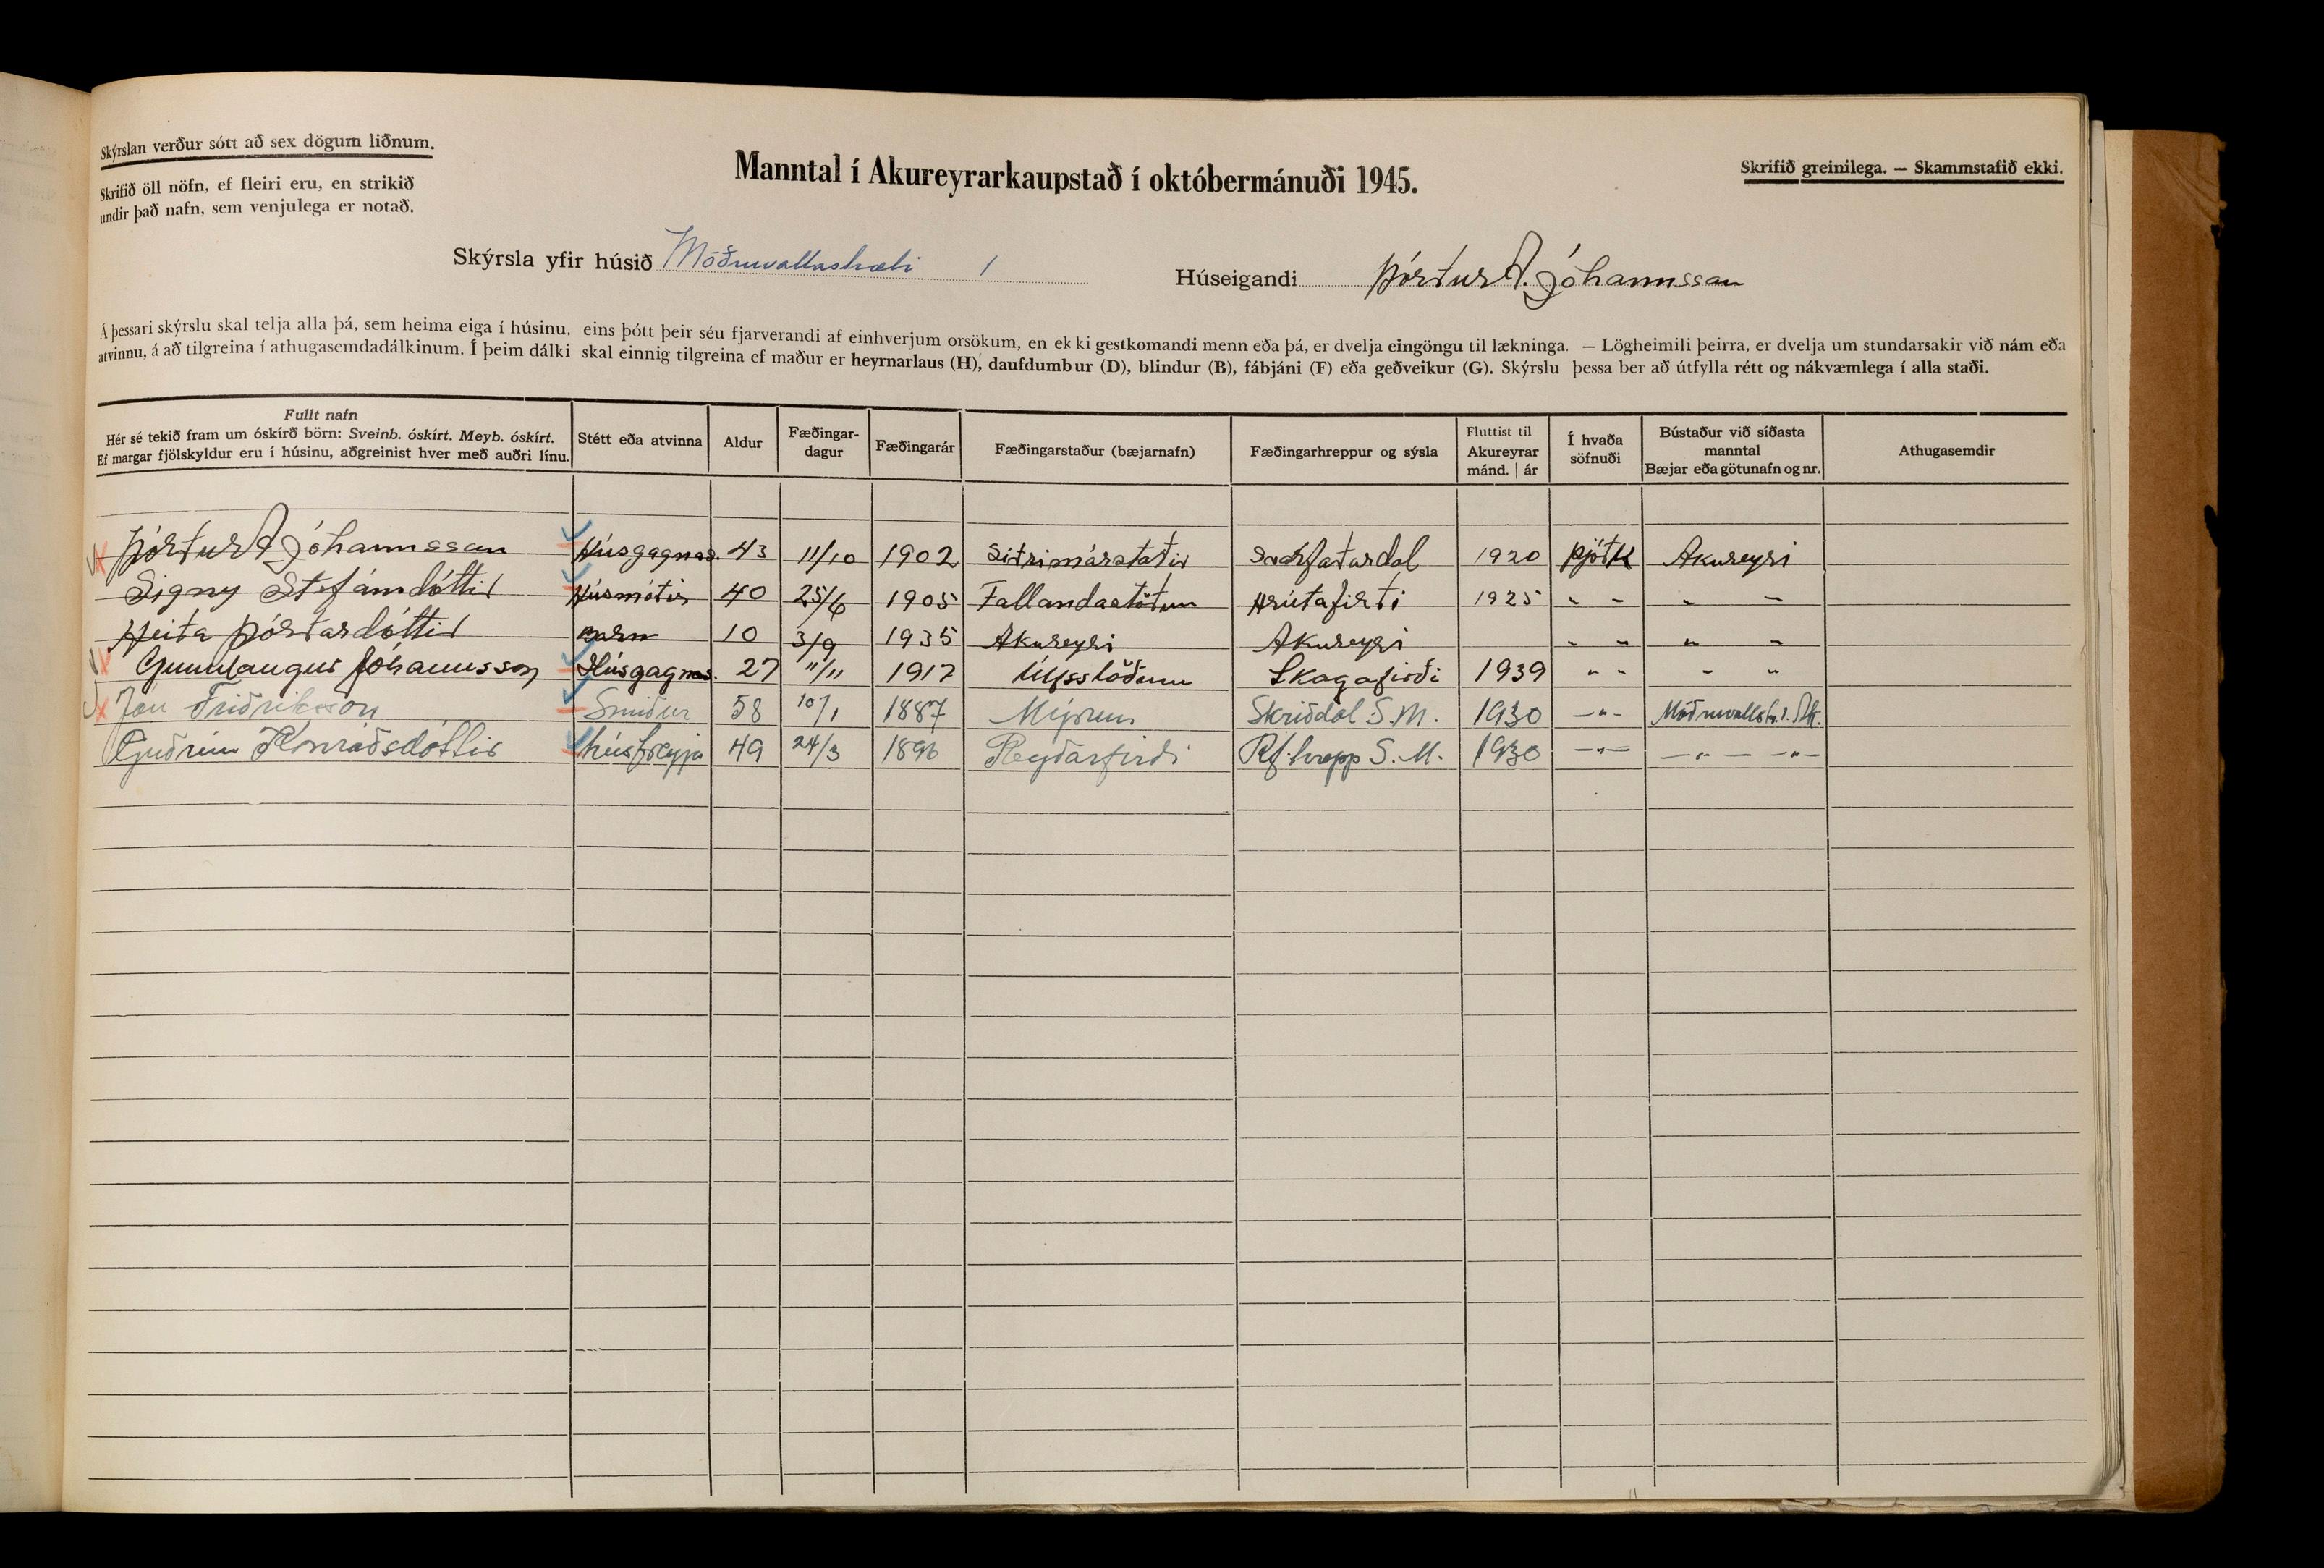 Skýrslan verður sótt að sex dögum liðnum.
Skrifið öll nöfn, ef fleiri eru, en strikið
undir það nafn, sem venjulega er notað.
Manntal í Akureyrarkaupstað í októbermánuði 1945.
Skrifið greinilega. — Skammstafið ekki.
Skýrsla yfir húsið Möðruvallastræti 1
Húseigandi Þórður A. Jóhannsson
Á þessari skýrslu skal telja alla þá, sem heima eiga í húsinu, eins þótt þeir séu fjarverandi af einhverjum orsökum, en ekki gestkomandi menn eða þá, er dvelja eingöngu til lækninga. — Lögheimili þeirra, er dvelja um stundarsakir við nám eða
atvinnu, á að tilgreina í athugasemdadálkinum. Í þeim dálki skal einnig tilgreina ef maður er heyrnarlaus (H), daufdumbur (D), blindur (B), fábjáni (F) eða geðveikur (G). Skýrslu þessa ber að útfylla rétt og nákvæmlega í alla staði.
Fullt nafn
Hér sé tekið fram um óskírð börn: Sveinb. óskírt. Meyb. óskírt.
Ef margar fjölskyldur eru í húsinu, aðgreinist hver með auðri línu.
Stétt eða atvinna
Aldur
Fæðingar-
dagur
Fæðingarár
Fæðingarstaður (bæjarnafn)
Fæðingarhreppur og sýsla
Fluttist til
Akureyrar
mánd. | ár
Í hvaða
söfnuði
Bústaður við síðasta
manntal
Bæjar eða götunafn og nr.
Athugasemdir
Þórður A Jóhannsson Húsgagnas. 43 11/10 1902 Svarfaðardal 1920 Þjóðk Akureyri
Signy Stefánsdóttir Húsmóðir 40 25/6 1905 Fallandastöðum Hrútafirði 1925 " " " "
Heiða Þórðardóttir Barn 10 3/9 1935 Akureyri Akureyri " " " "
Gunnlaugur Jóhannsson Húsgagnas. 27 11/11 1917 Úlfsstöðum Skagafirði 1939 " " " "
Jón Friðriksson Smiður 58 10/1 1887 Mýrum Skriðdal S.M. 1930 —"— Möðruvallastr. 1. Ak.
Guðrún Konráðsdóttir húsfreyja 49 24/3 1896 Reyðarfirði Rf.hrepp S.M. 1930 —"— —"— —"—